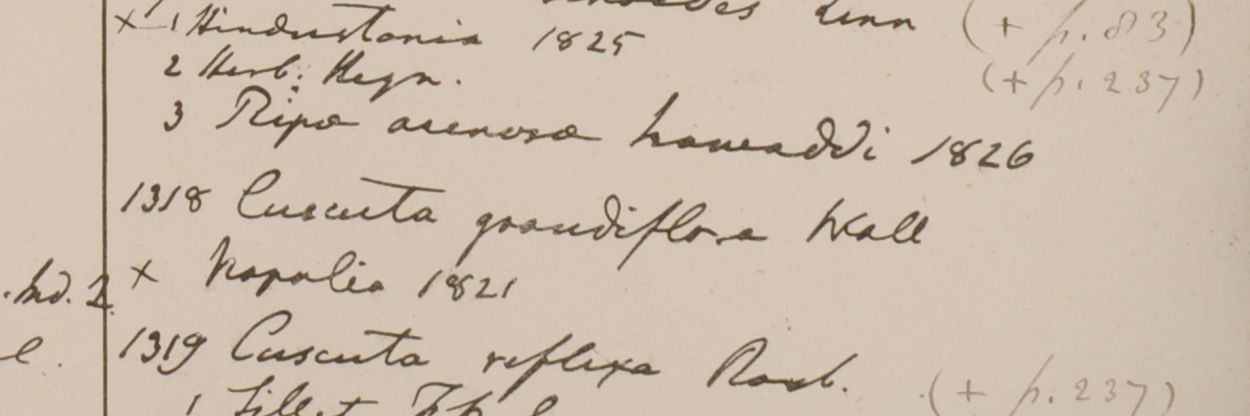 Linn (+ p. 83)
× 1 Hindustania 1825
2 Herb: Heyn. (+ p. 237)
3 Ripa arenosa hawaddi 1826
1318 Cuscuta grandiflora Wall
.hd. 2 × Napalia 1821
e. 1319 Cuscuta reflexa Roxb. (+ p. 237)
1